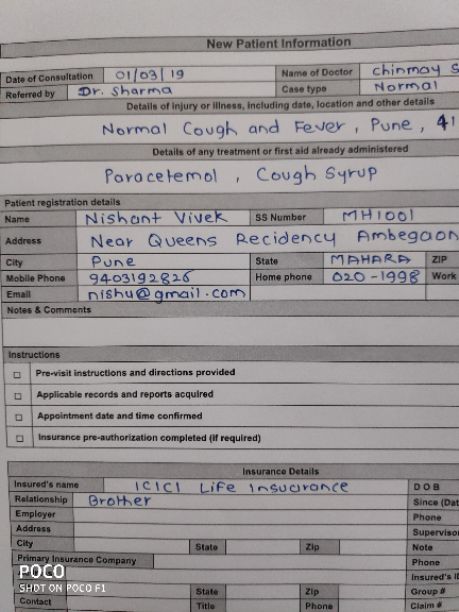 New Patient Information
Date of Consultation 01/03/19 Name of Doctor Chinmay S
Referred by Dr. Sharma Case type Normal
Details of injury or illness, including date, location and other details
Normal Cough and Fever, Pune, 41
Details of any treatment or first aid already administered
Paracetemol, Cough Syrup
Patient registration details
Name Nishant Vivek SS Number MH1001
Address Near Queens Recidency Ambegaon
City Pune State MAHARA ZIP
Mobile Phone 9403192826 Home phone 020-1998 Work
Email nishu@gmail.com
Notes & Comments
Instructions
Pre-visit instructions and directions provided
Applicable records and reports acquired
Appointment date and time confirmed
Insurance pre-authorization completed (if required)
Insurance Details
Insured's name ICICI Life Insurance DOB
Relationship Brother Since (Dat
Employer Phone
Address Supervisor
City State Zip Note
Primary Insurance Company Phone
Insured's I
State Zip Group #
Contact Title Phone Claim #
POCO
SHOT ON POCO F1